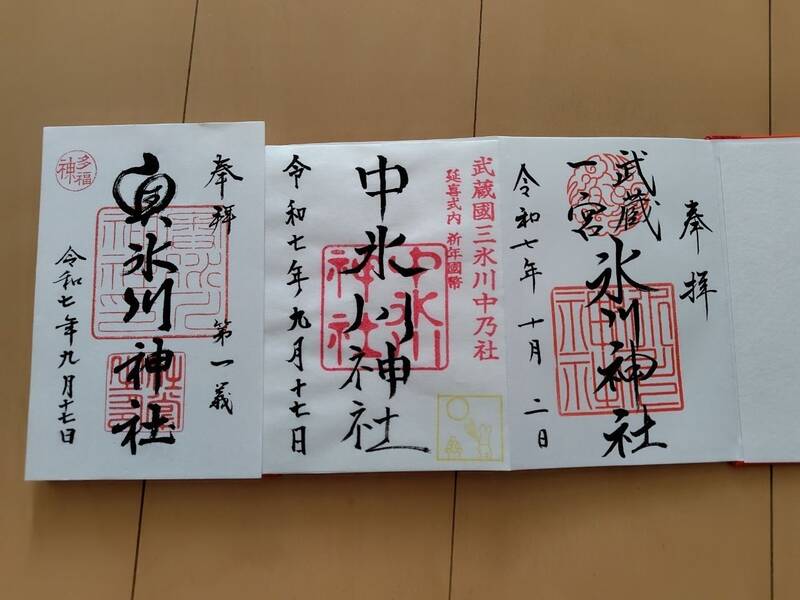 奉拝
武蔵
一宮
氷川神社
令和七年 十月 二日
武蔵國三氷川中乃社
延喜式内 祈年國幣
中氷川神社
中氷川
神社
令和七年 九月 十七日
奉拝 第一義
奥氷川神社
多福
神
令和七年九月十七日